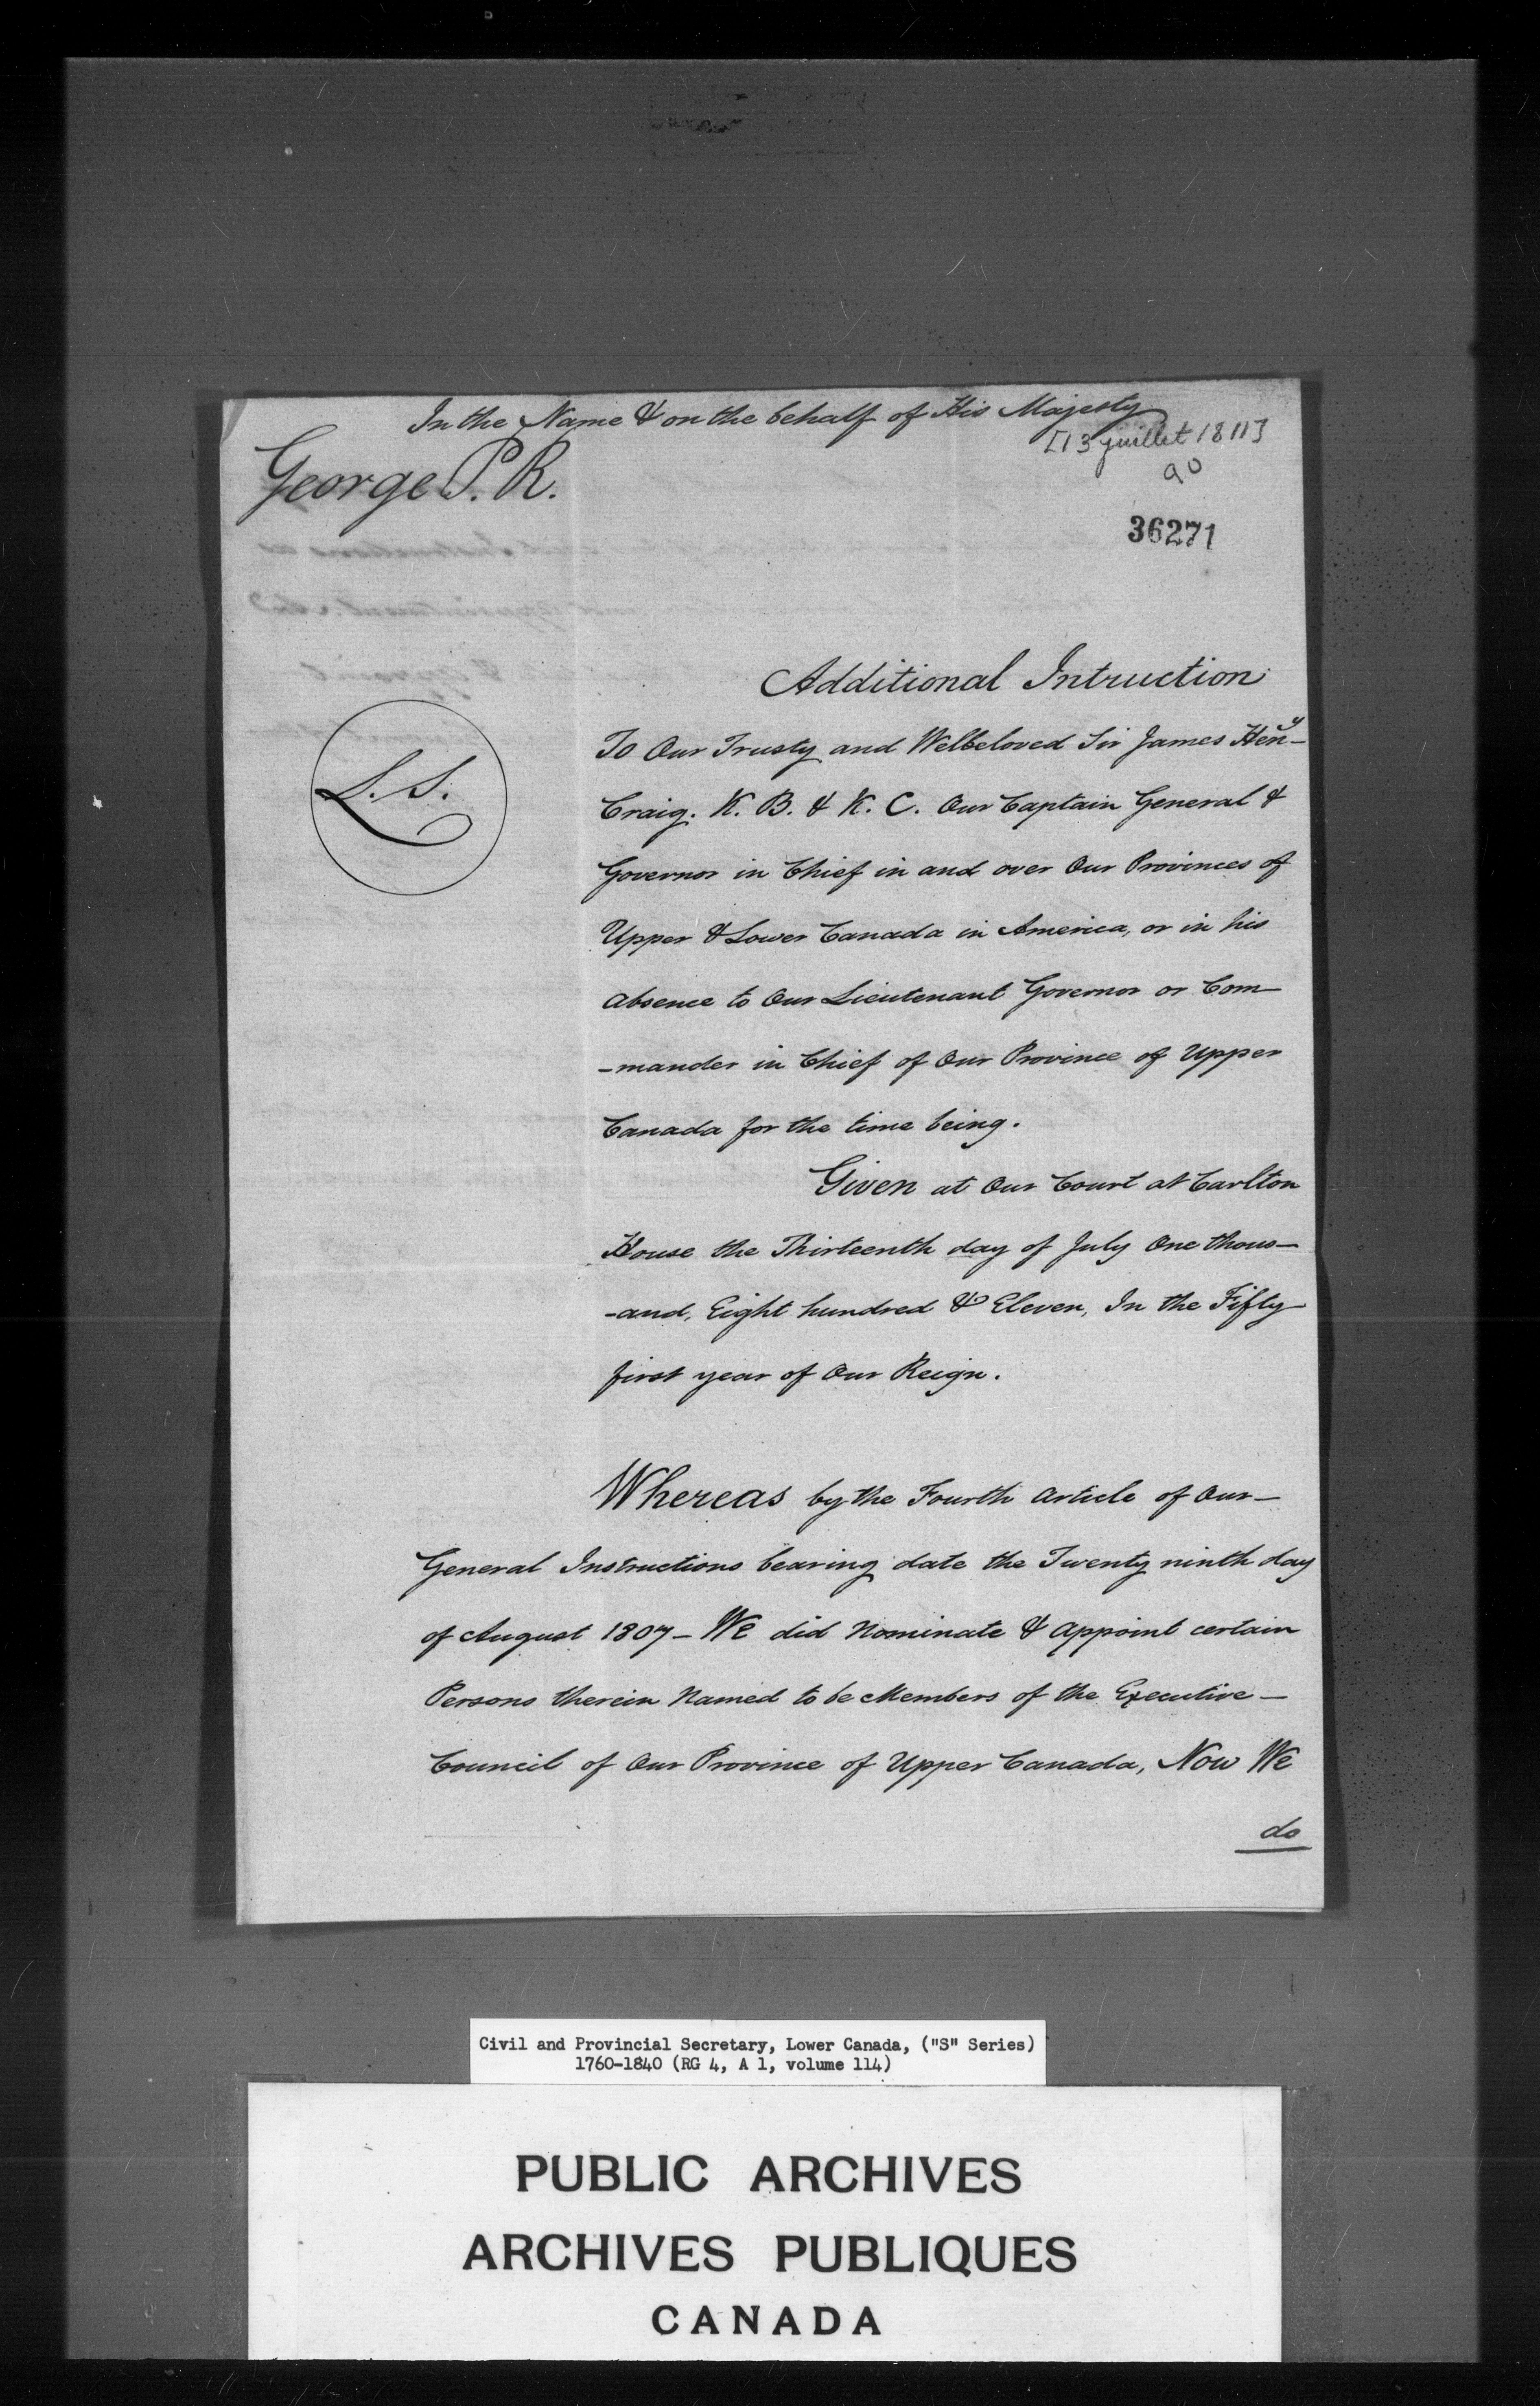 In the Name & on the behalf of His Majesty
[13 juillet 1811]
George P. R.
36271
Additional Intruction
To Our Trusty and Welbeloved Sir James Hen^y-
L. S.
Craig. K. B. & K. C. Our Captain General &
Governor in Chief in and over Our Provinces of
Upper & Lower Canada in America, or in his
absence to Our Lieutenant Governor or Com-
-mander in Chief of Our Province of Upper
Canada for the time being.
Given at Our Court at Carlton
House the Thirteenth day of July One thous-
-and, Eight hundred & Eleven, In the Fifty
first year of Our Reign.
Whereas by the Fourth Article of Our-
General Instructions bearing date the Twenty ninth day
of August 1807- We did Nominate & appoint certain
Persons therein Named to be Members of the Executive-
Council of Our Province of Upper Canada, Now We
do
Civil and Provincial Secretary, Lower Canada, ("S" Series)
1760-1840 (RG 4, A 1, volume 114)
PUBLIC ARCHIVES
ARCHIVES PUBLIQUES
CANADA